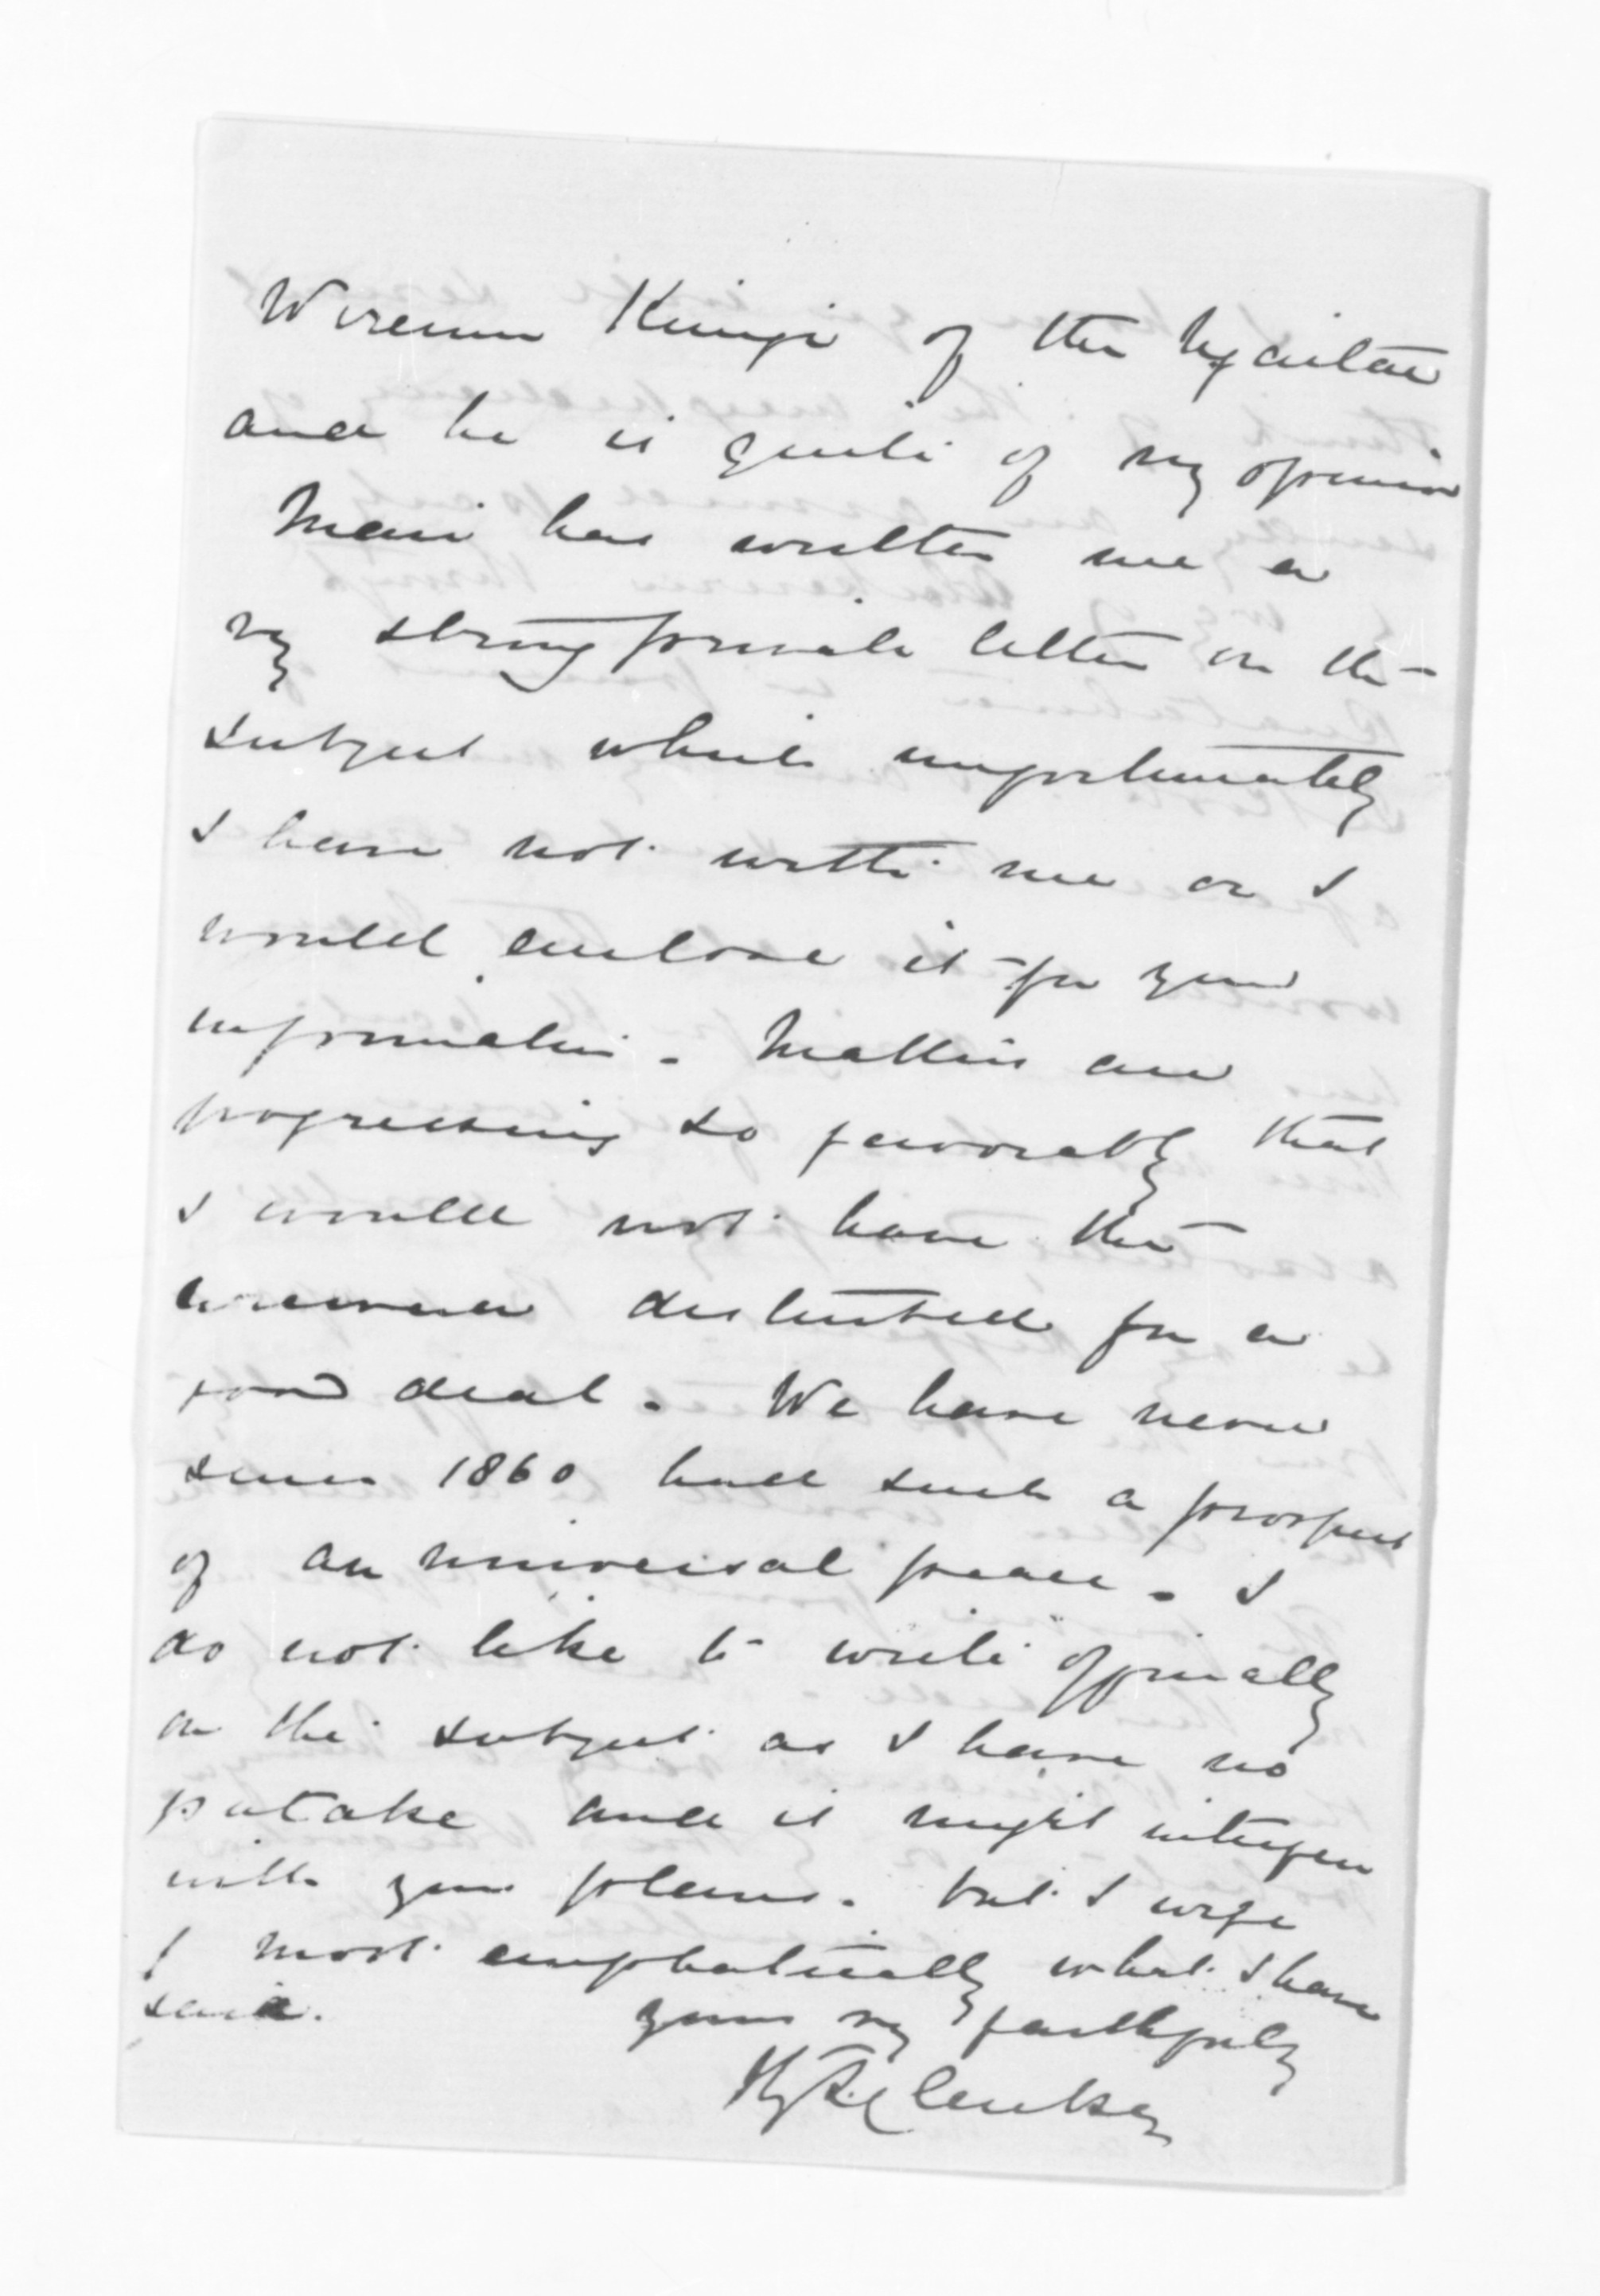 Wiremu Kingi of the Ngaitai
and he is quite of my opinion
Mair has written me a
vy strong private letter on the
subject which unfortunately
I have not with me or I
would enclose it for your
information. Matters are
progressing so favorably that
I would not have the
disturbed for a
good deal. We have never
since 1860 had such a prospect
of an universal peace. I
do not like to write officially
on the subject as I have no
putake and it might interfere
with your plans. but I urge
most emphatically what I have
said.
yours vy faithfully
H. T. Clarke